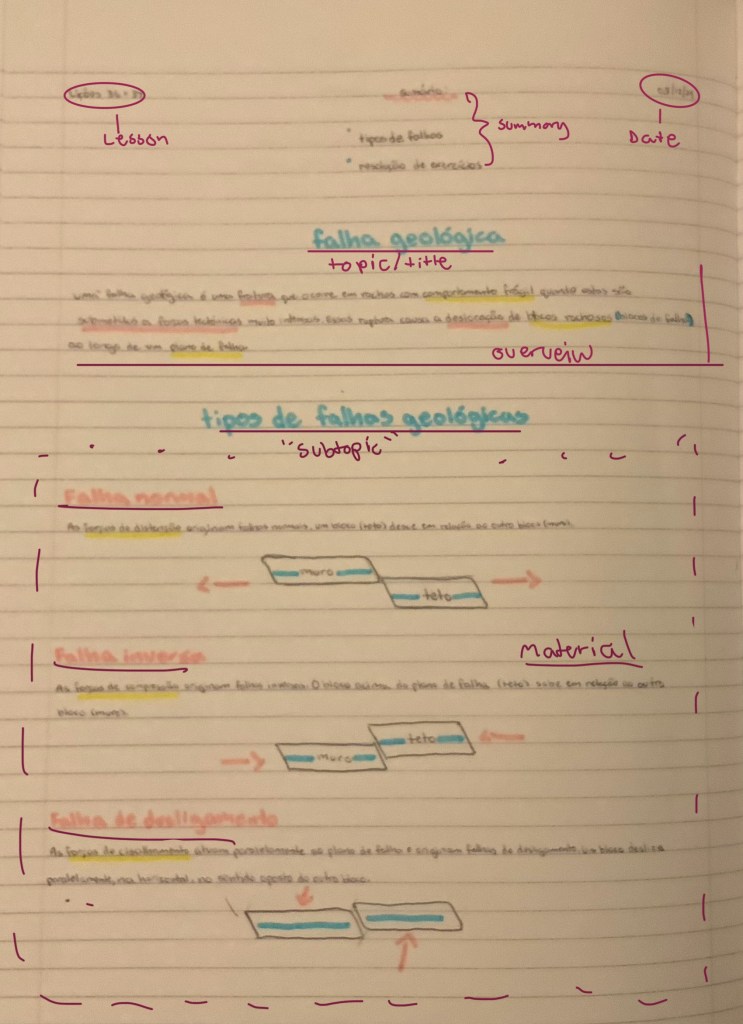 Lições
sumário
Lesson
Summary
Date
tipos de falhas
resolução de exercícios
falha geológica
topic/title
uma falha geológica é uma fratura que ocorre em rochas com comportamento frágil quando estas são
submetidas a forças tectónicas muito intensas. Essa rutura causa a deslocação de blocos rochosos (blocos de falha)
ao longo de um plano de falha.
overveiw
tipos de falhas geológicas
"Subtopic"
Falha normal
As forças de distensão originam falhas normais, um bloco (teto) desce em relação ao outro bloco (muro).
muro
teto
Falha inversa
Material
As forças de compressão originam falhas inversas. O bloco acima do plano de falha (teto) sobe em relação ao outro
bloco (muro).
teto
muro
Falha de desligamento
As forças de cisalhamento atuam paralelamente ao plano de falha e originam falhas de desligamento, um bloco desliza
paralelamente, na horizontal, no sentido oposto do outro bloco.